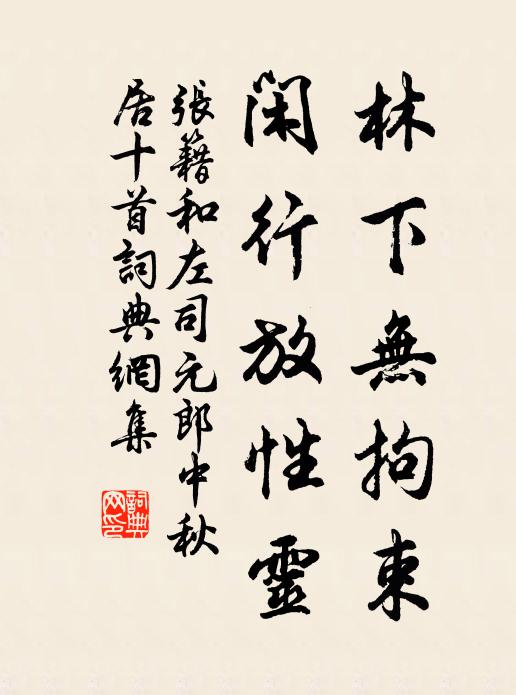 林下無拘束
閑行放性靈
張籍和左司元郎中秋
居十首詞典網集
詞典
网印